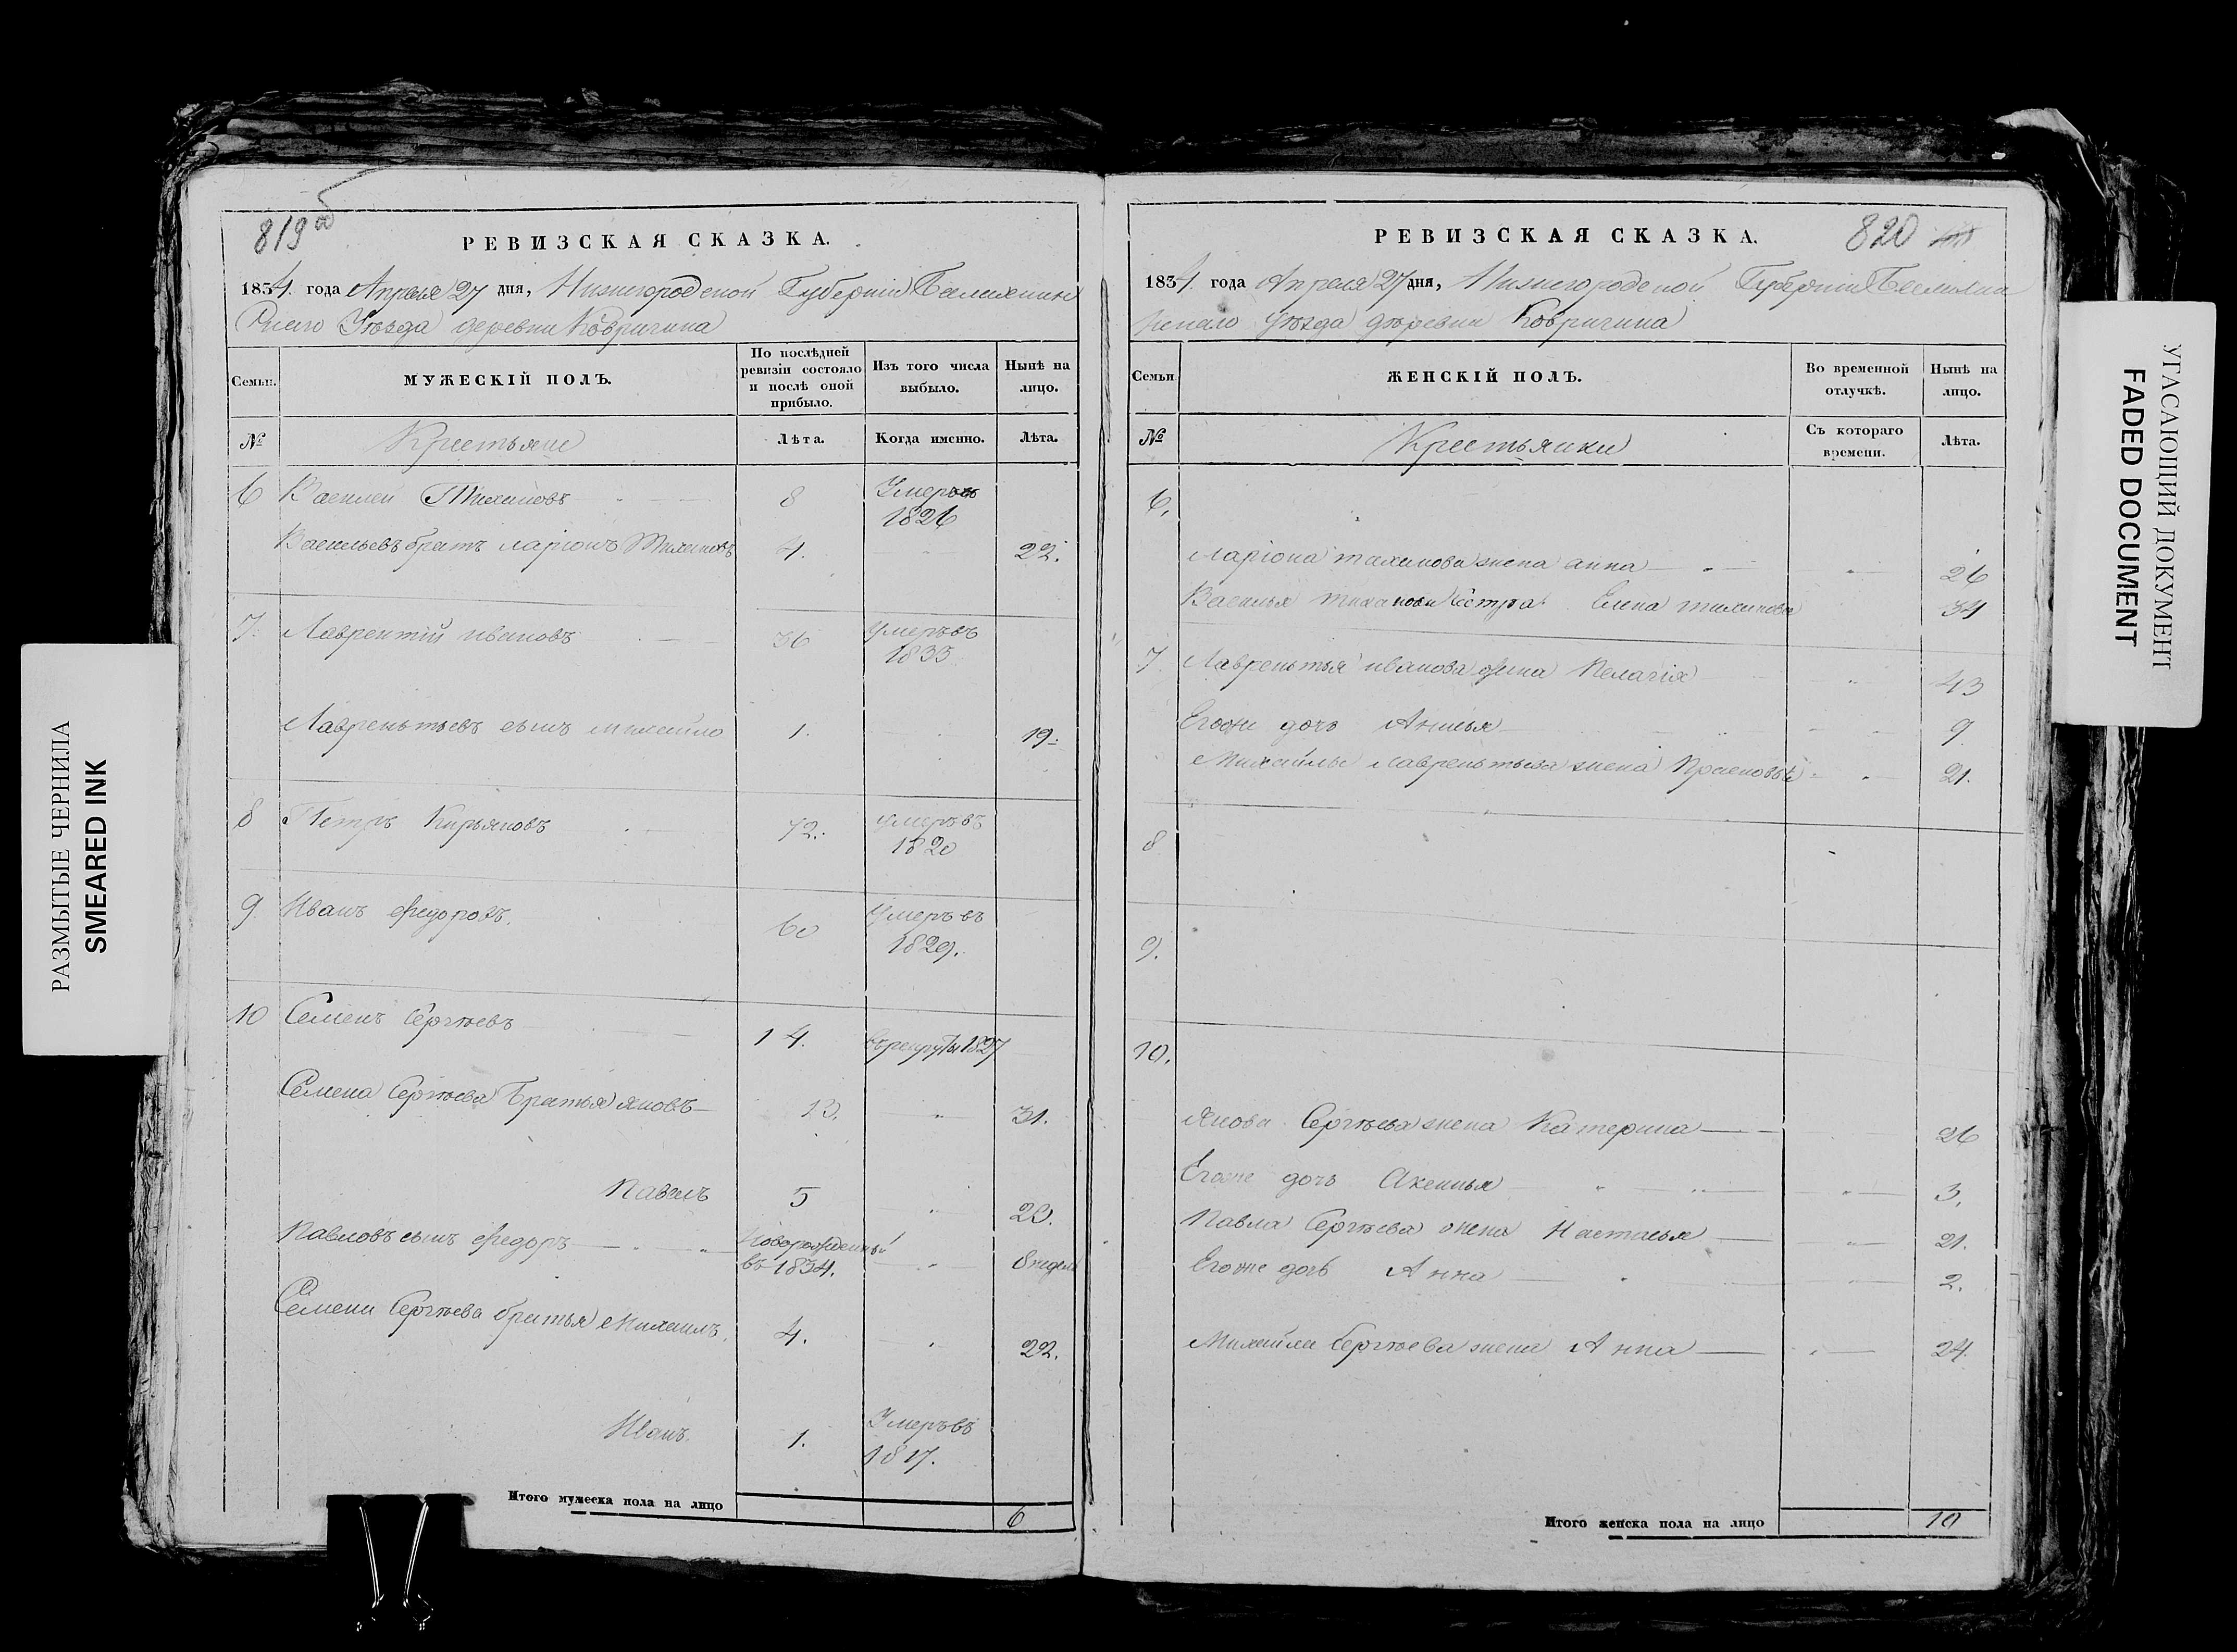 819 об
РЕВИЗСКАЯ СКАЗКА.
1834. года Апреля 27 дня, Нижегородской Губернии
Уѣзда деревни Ковригина
Семьи.
МУЖЕСКІЙ ПОЛЪ.
По послѣдней ревизіи состояло и послѣ оной прибыло.
Изъ того числа выбыло.
Нынѣ на лицо.
№
Крестьяне
Лѣта.
Когда именно.
Лѣта.
6 Василей Тихановъ 8 Умеръ
1826
Васильевъ братъ ларіонъ Тихановъ 4. 22.
7. Лаврентій ивановъ 36 умеръ въ
1833
Лаврентьевъ сынъ михайло 1. 19.
8 Петръ Кирьяновъ 72. умеръ въ
1820
9. Иванъ федоровъ. 60 Умеръ въ
1829.
10 Семенъ Сергѣевъ 14. въ рекруты 1827
Семена Сергѣева Братья яковъ 13. 31.
Павелъ 5 23.
Павловъ сынъ федоръ новорожденный
въ 1834. 8 недель
Семена Сергѣева братья Михаилъ. 4. 22.
Иванъ. 1. Умеръ въ
1817.
Итого мужеска пола на лицо 6
820
РЕВИЗСКАЯ СКАЗКА.
1834. года Апреля 27 дня, Нижегородской Губернии
Уѣзда деревни Ковригина
Семьи
ЖЕНСКІЙ ПОЛЪ.
Во временной отлучкѣ.
Нынѣ на лицо.
№
Крестьянки
Съ котораго времени.
Лѣта.
6.
Ларіона тиханова жена анна 26
Василья тиханова сестра Елена тиханова 34
7. Лаврентья иванова жена Пелагія 43
Егоже дочь Анисья 9
Михайлы лаврентьева жена Прасковья 21.
8
9.
10.
Якова Сергѣева жена Катерина 26
Егоже дочь Аксинья 3.
Павла Сергѣева жена Настасья 21.
Егоже дочь Анна 2.
Михайла Сергѣева жена Анна 24.
Итого женска пола на лицо 10
РАЗМЫТЫЕ ЧЕРНИЛА
SMEARED INK
УГАСАЮЩИЙ ДОКУМЕНТ
FADED DOCUMENT